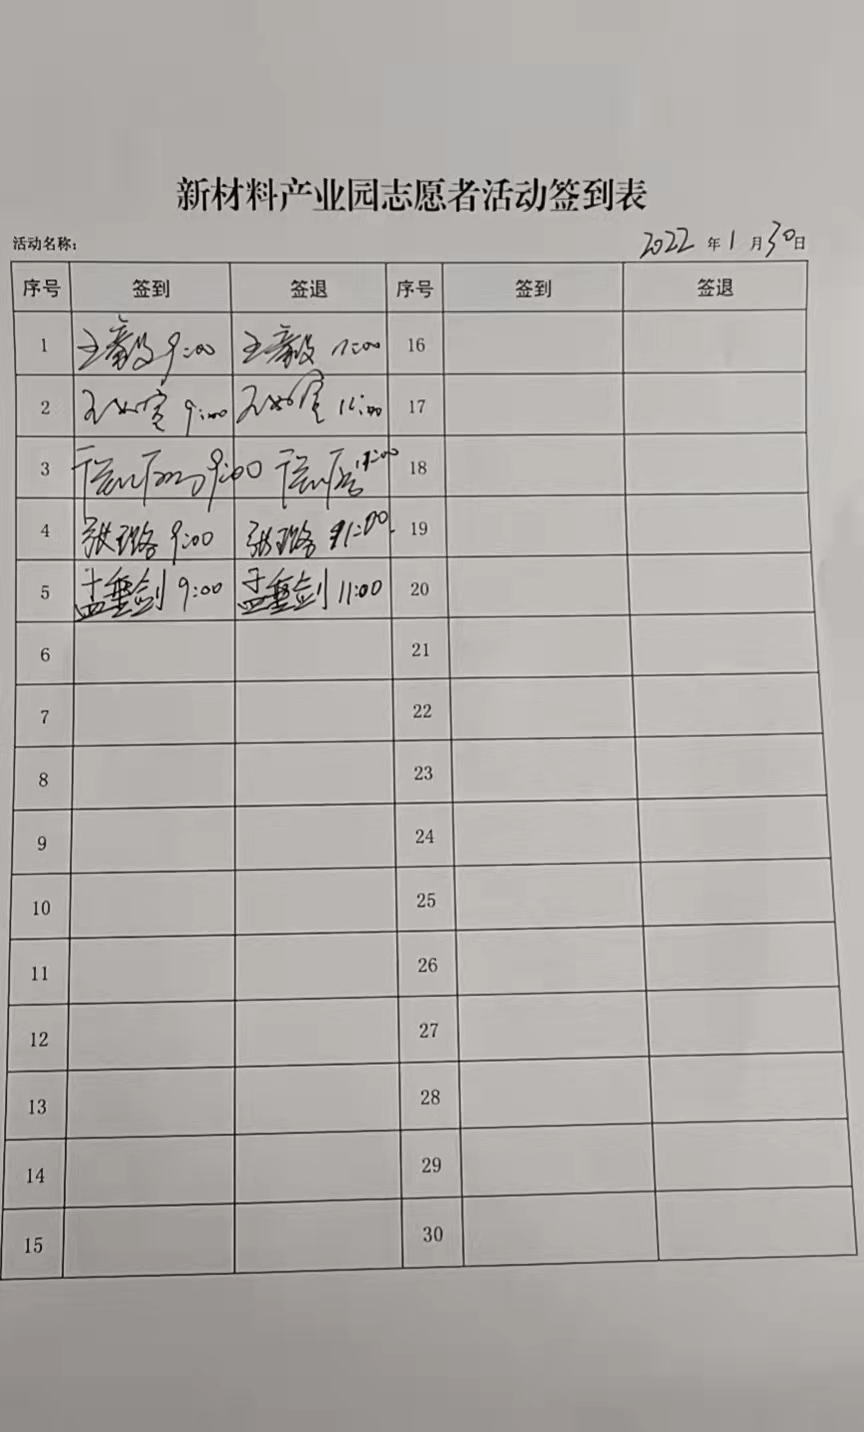 新材料产业园志愿者活动签到表
活动名称: 2022 年 1 月 30 日
序号 签到 签退 序号 签到 签退
1 王毅 9:00 王毅 11:00 16
2 9:00 11:00 17
3 9:00 11:00 18
4 张璐 9:00 张璐 11:00 19
5 孟重剑 9:00 孟重剑 11:00 20
6 21
7 22
8 23
9 24
10 25
11 26
12 27
13 28
14 29
15 30